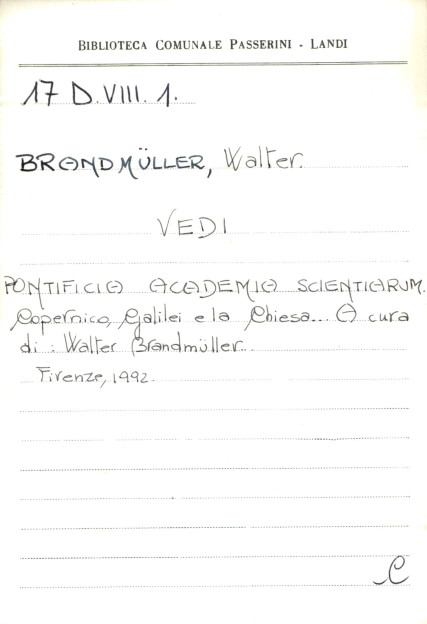 BIBLIOTECA COMUNALE PASSERINI - LANDI
17 D.VIII.1.
BRANDMÜLLER, Walter.
VEDI
PONTIFICIA ACADEMIA SCIENTIARUM.
Copernico, Galilei e la Chiesa... A cura
di : Walter Brandmüller.
Firenze, 1992.
C